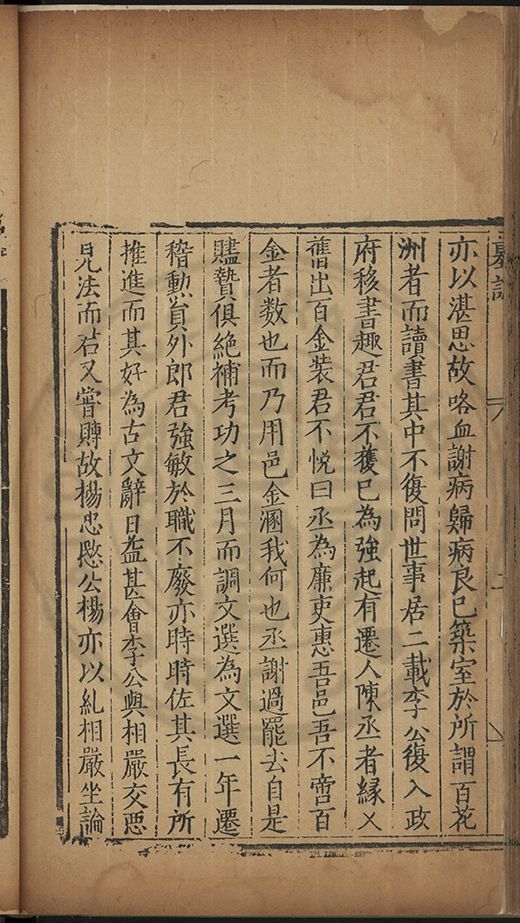 墓誌
亦以湛思故咯血謝病歸病良已築室於所謂百花
洲者而讀書其中不復問世事居二載李公復入政
府移書趣君君不獲已為強起有遷人陳丞者緣乂
舊出百金装君不悅曰丞為廉吏惠吾邑吾不啻百
金者数也而乃用邑金溷我何也丞謝過罷去自是
贐贄俱絶補考功之三月而調文選為文選一年遷
稽勲員外郎君強敏於職不廢亦時時佐其長有所
推進而其好為古文辭日益甚會李公與相嚴交惡
見法而君又嘗賻故楊忠愍公楊亦以糺相嚴坐論